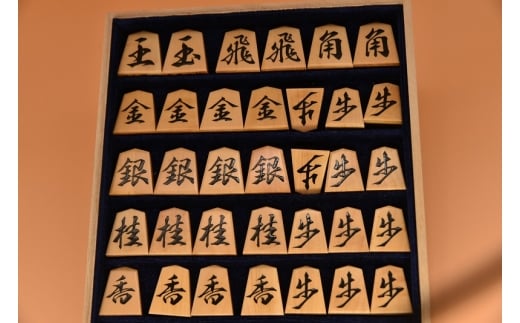 王 玉 飛 飛 角 角
金 金 金 金 歩 歩 歩
銀 銀 銀 銀 歩 歩 歩
桂 桂 桂 桂 歩 歩 歩
香 香 香 香 歩 歩 歩